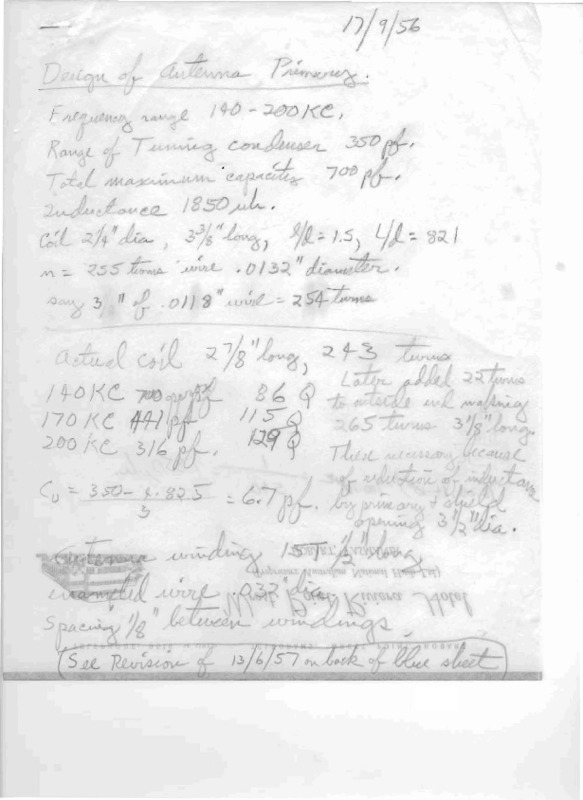 17/9/56
Design of Antenna Primary.
Frequency range 140-200KC.
Range of Tuning condenser 350pf.
Total maximum capacity 700 pf.
Inductance 1850 uh.
Coil 2 1/4" dia, 3 3/8" long, l/d = 1.5, L/d = 821
n = 255 turns wire .0132" diameter.
say 3 " of .0118" wire = 254 turns
Actual coil 2 7/8" long, 243 turns
140 KC 700 pf 86 Q
170 KC 441 pf 115 Q
200 KC 316 pf. 129 Q
Later added 22 turns
to outside end making
265 turns 3 1/8" long.
These necessary because
of reduction of inductance
by primary & shield
opening 3 1/2" dia.
= 6.7 pf.
Antenna winding 15T 1/2" long
enameled wire .033" dia
Spacing 1/8" between windings.
West Riviera Hotel
See Revision of 13/6/57 on back of blue sheet